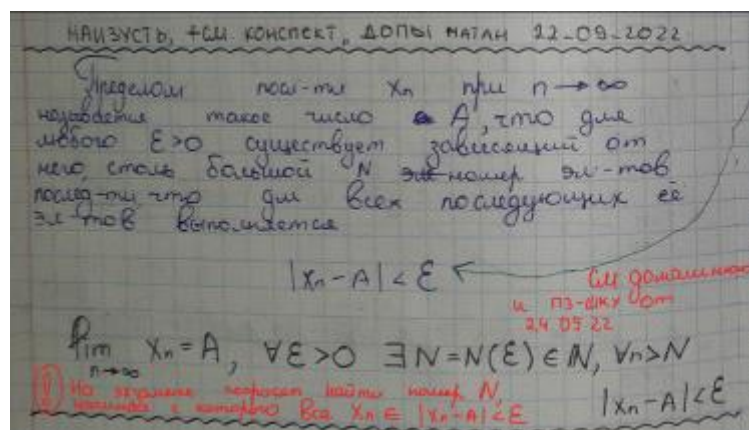 НАИЗУСТЬ, +СМ. КОНСПЕКТ, ДОПЫ МАТАН 22-09-2022
Пределом посл-ти Xn при n→∞
называется такое число A, что для
любого Ɛ>0 существует зависящий от
него, столь большой N номер эл-тов
послед-ти, что для всех последующих её
эл-тов выполняется
|Xn-A|<Ɛ
См домашнюю
и ПЗ-шку от
24 09 22
lim Xn=A, ∀Ɛ>0 ∃N=N(Ɛ)∈ℕ, ∀n>N
n→∞
|Xn-A|<Ɛ
На экзамене попросят найти номер N,
начиная с которого все Xn ∈ |Xn-A|<Ɛ